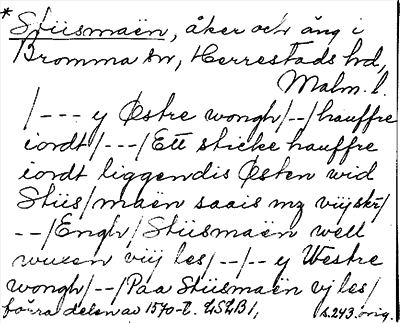 * Stiismaën, åker och äng i
Bromma sn, Herrestads hd,
Malm. l.
/--- y Østre wongh/--/hauffre
iordt/---/Ett sticke hauffre
iordt liggendis Østen wid
Stiis/maën saais mz viijskr/
--/Engh/Stiismaën well
wuxen viij les/--/--y Westre
wongh/--/Paa Stiismaën vj les/
förra delen av 1570-t. LSLB1, s.243.orig.